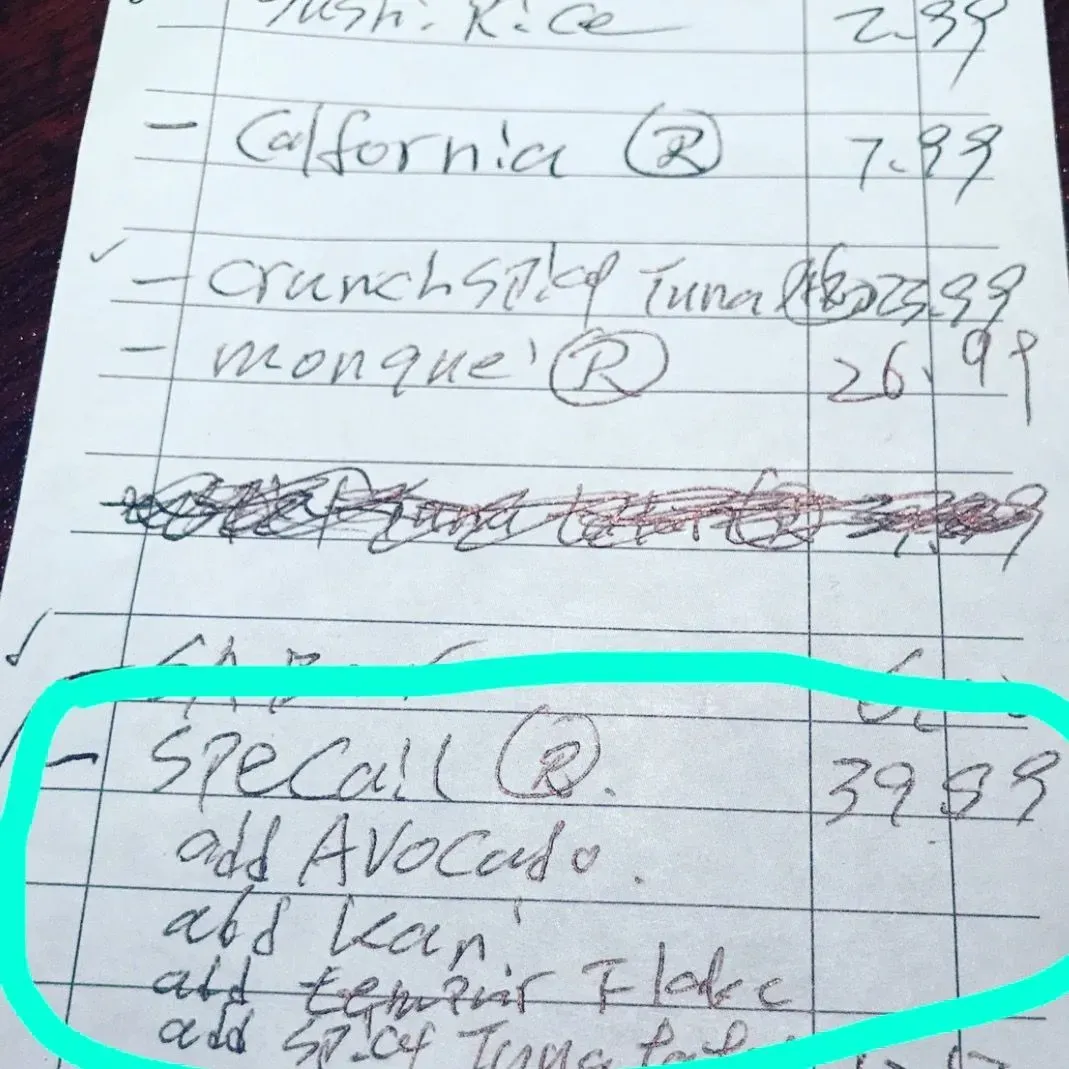 Sushi Rice 2.99
- Calfornia Ⓡ 7.99
- crunch spicy Tuna 23.99
- monque' Ⓡ 26.99
- Specail Ⓡ. 39.99
add Avocado.
add kani
add Flake
add spicy Tuna